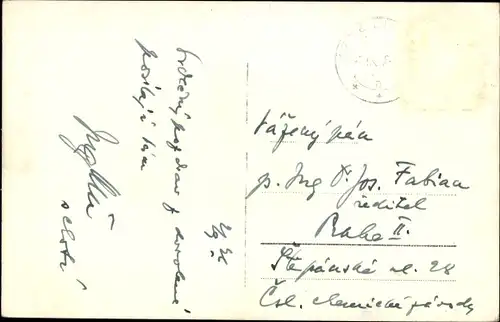 Srdečný pozdrav z dovolené
posílají Vám
vážený pán
p. Ing Dr. Jos. Fabian
ředitel
Praha II.
Štěpánská ul. 28
Čsl. chemické závody